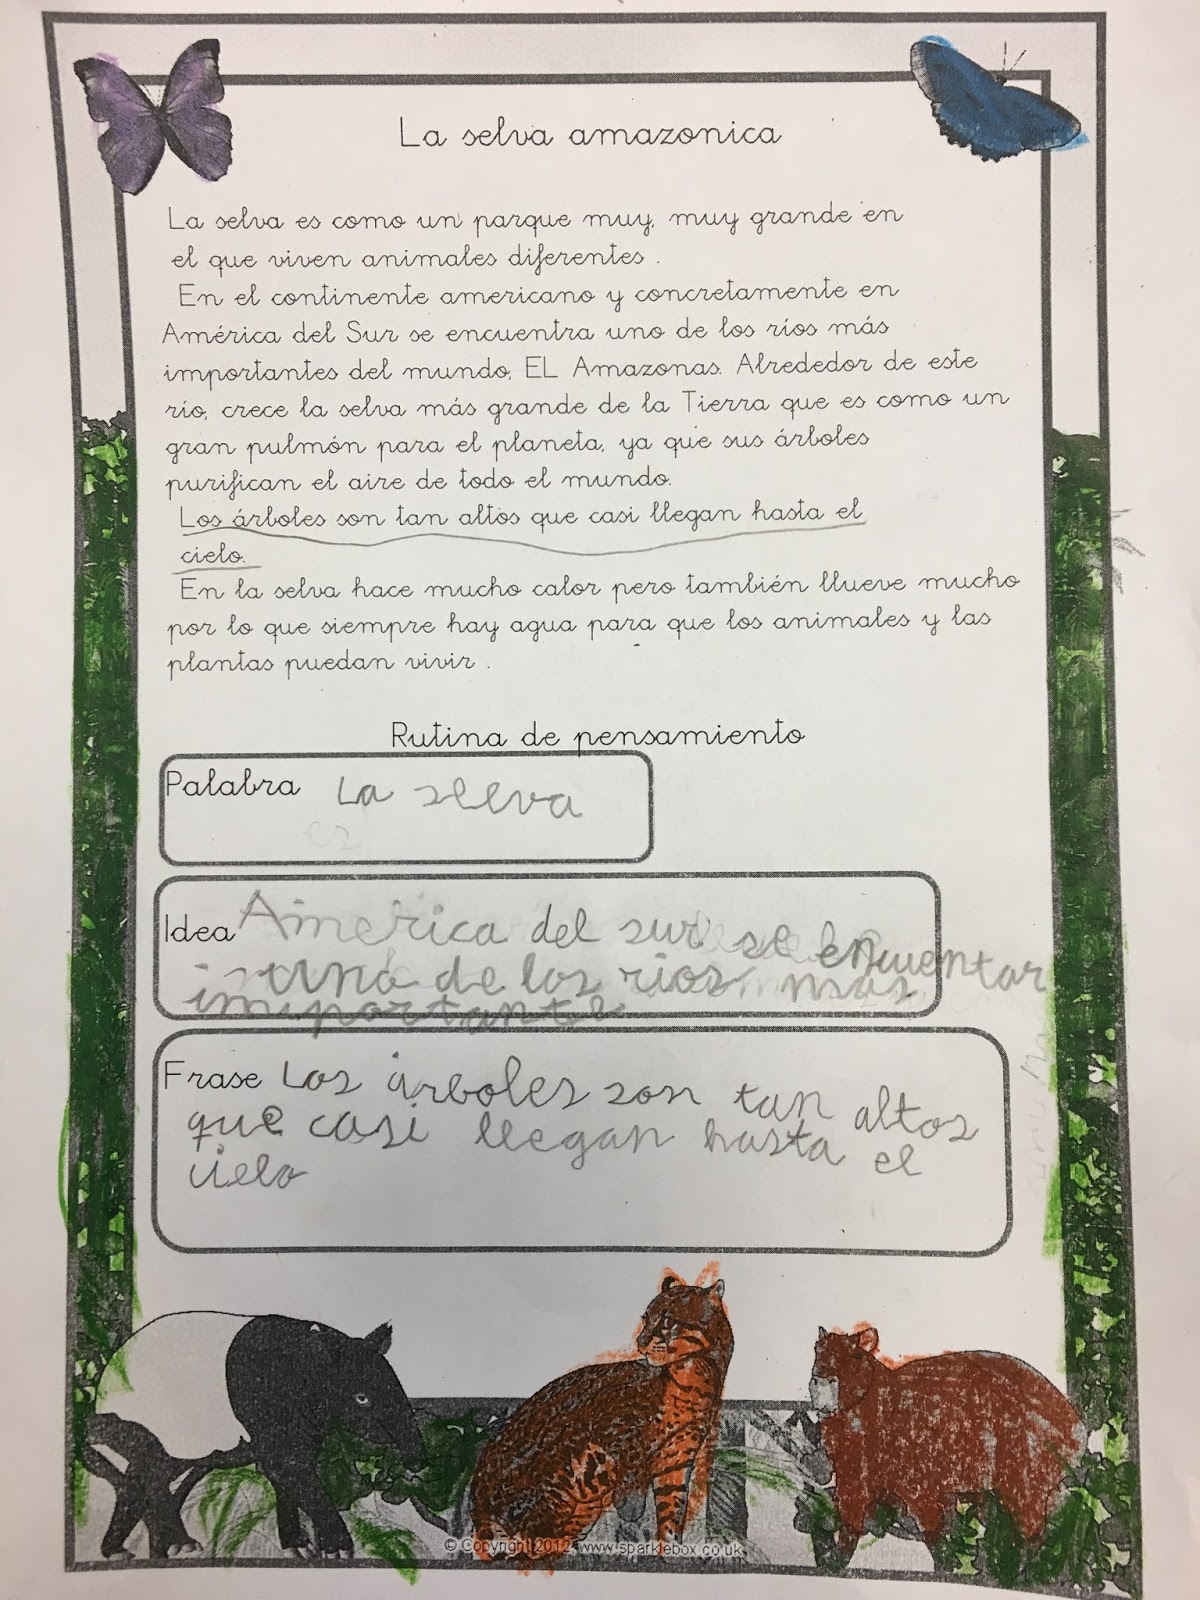 La selva amazonica
La selva es como un parque muy, muy grande en
el que viven animales diferentes .
En el continente americano y concretamente en
América del Sur se encuentra uno de los ríos más
importantes del mundo, EL Amazonas. Alrededor de este
río, crece la selva más grande de la Tierra que es como un
gran pulmón para el planeta, ya que sus árboles
purifican el aire de todo el mundo.
Los árboles son tan altos que casi llegan hasta el
cielo.
En la selva hace mucho calor pero también llueve mucho
por lo que siempre hay agua para que los animales y las
plantas puedan vivir .
Rutina de pensamiento
Palabra La selva
es
Idea America del sur se encuentar
uno de los rios mas
importante
Frase Los árboles son tan altos
que casi llegan hasta el
cielo
© Copyright 2012, www.sparklebox.co.uk